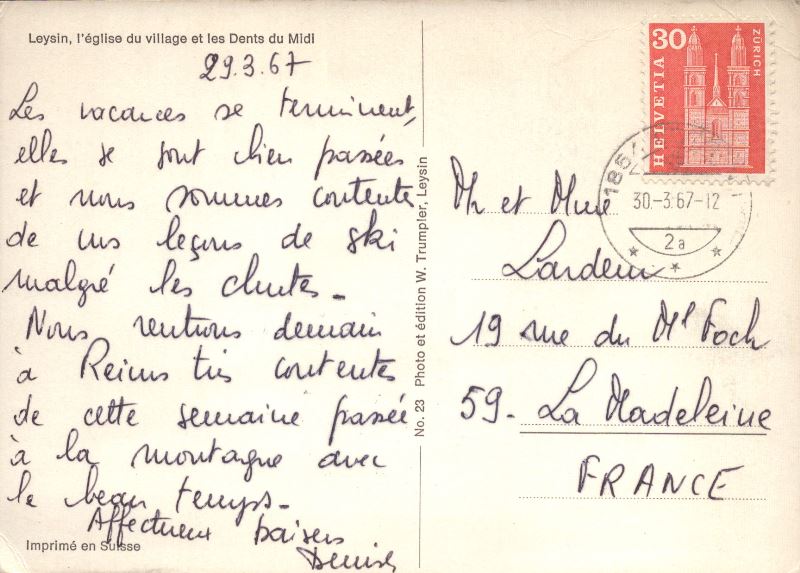 Leysin, l'église du village et les Dents du Midi
29.3.67
Les vacances se terminent,
elles se sont bien passées
et nous sommes contentes
de nos leçons de ski
malgré les chutes_
Nous rentrons demain
à Reims très contentes
de cette semaine passée
à la montagne avec
le beau temps_
Affectueux baisers
Denise
Imprimé en Suisse
No. 23 Photo et édition W. Trumpler, Leysin
30
HELVETIA
ZÜRICH
186
30.-3.67-12
2a
Mr et Mme
19 rue du Ml Foch
59_ La Madeleine
FRANCE